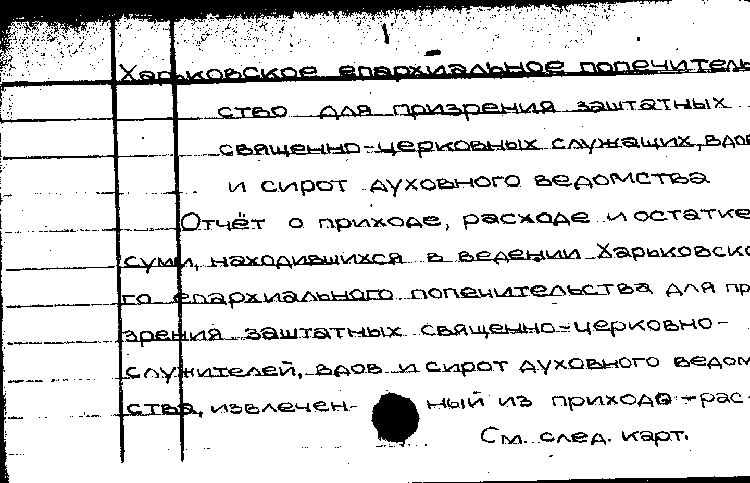 Харьковское епархиальное попечитель
ство для призрения заштатных
священно-церковных служащих, вдов
и сирот духовного ведомства
Отчёт о приходе, расходе и остатке
сумм, находившихся в ведении Харьковско
го епархиального попечительства для при
зрения заштатных священно-церковно-
служителей, вдов и сирот духовного ведом
ства, извлечен- ный из приходо-рас-
См. след. карт.